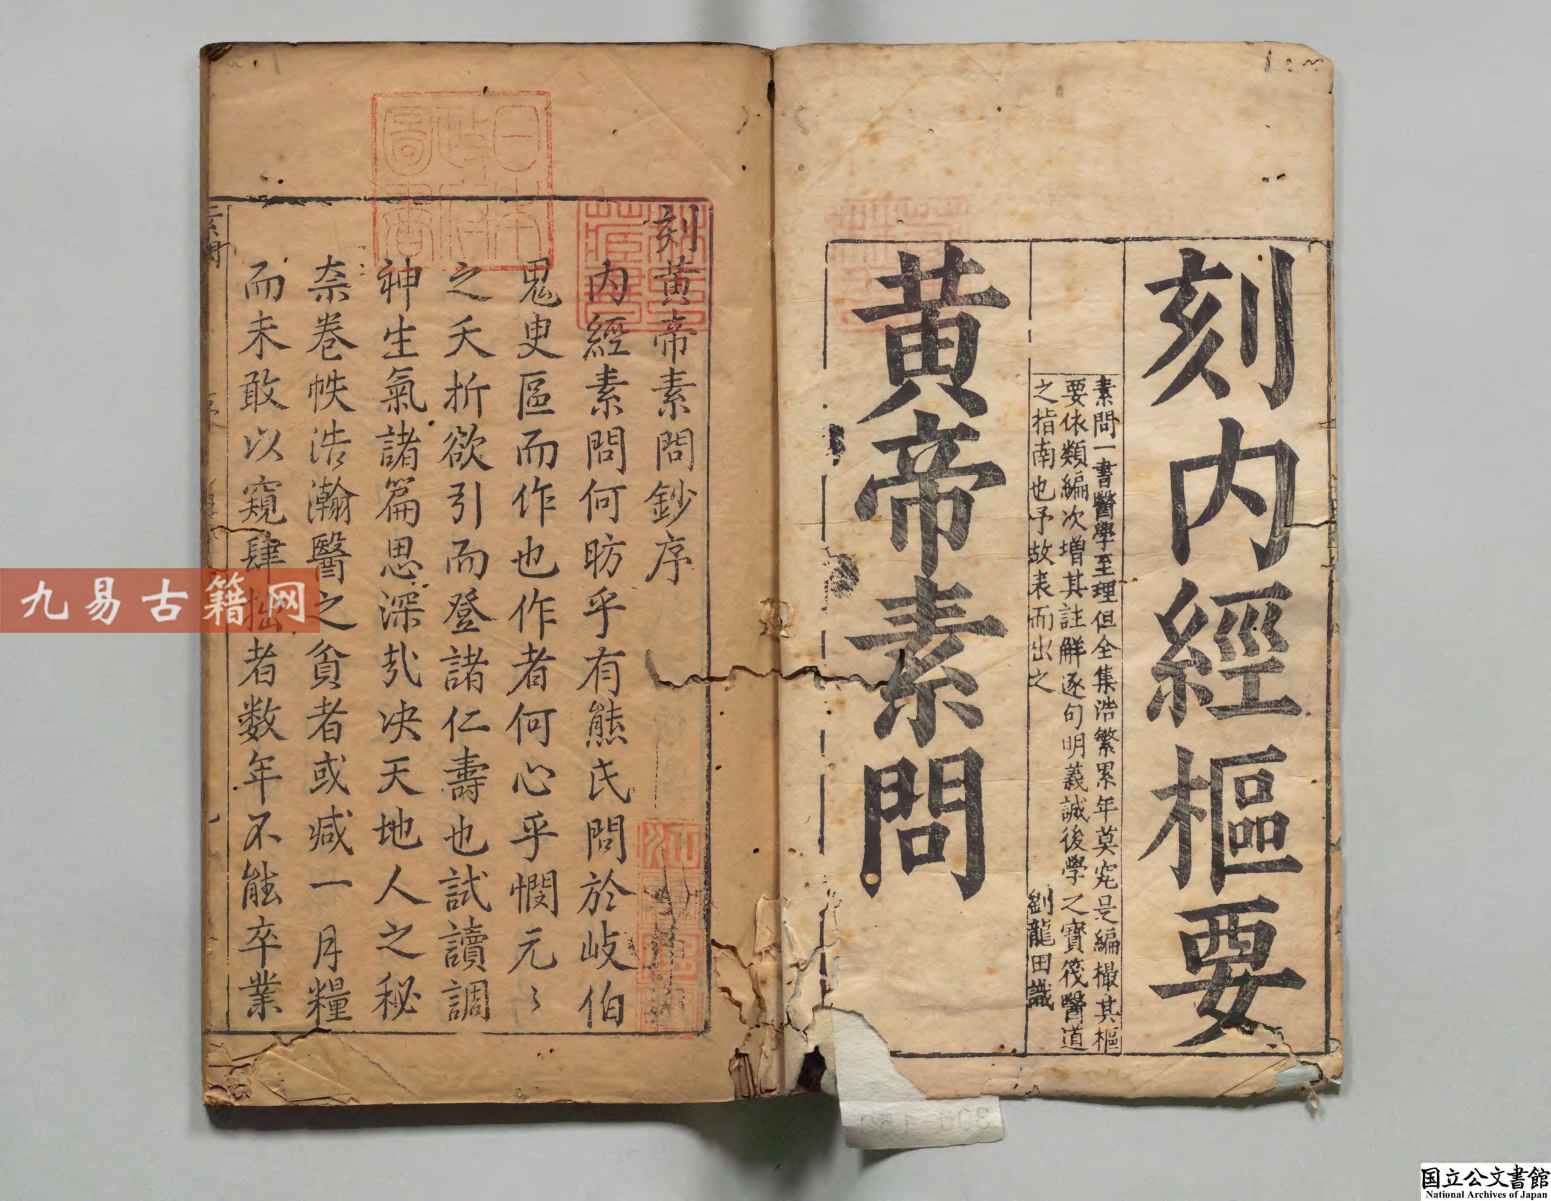 刻内經樞要
素問一書醫學至理但全集浩繁累年莫究是編撮其樞
要依類編次增其註解逐句明義誠後學之寶筏醫道
之指南也予故表而出之 劉龍田識
黃帝素問
刻黃帝素問鈔序
内經素問何昉乎有熊氏問於岐伯
鬼臾區而作也作者何心乎憫元〻
之夭折欲引而登諸仁壽也試讀調
神生氣諸篇思深㢤决天地人之秘
柰卷帙浩瀚醫之貧者或减一月糧
而未敢以窺肆拙者数年不能卒業
日本
政府
圖書
九易古籍网
国立公文書館
National Archives of Japan